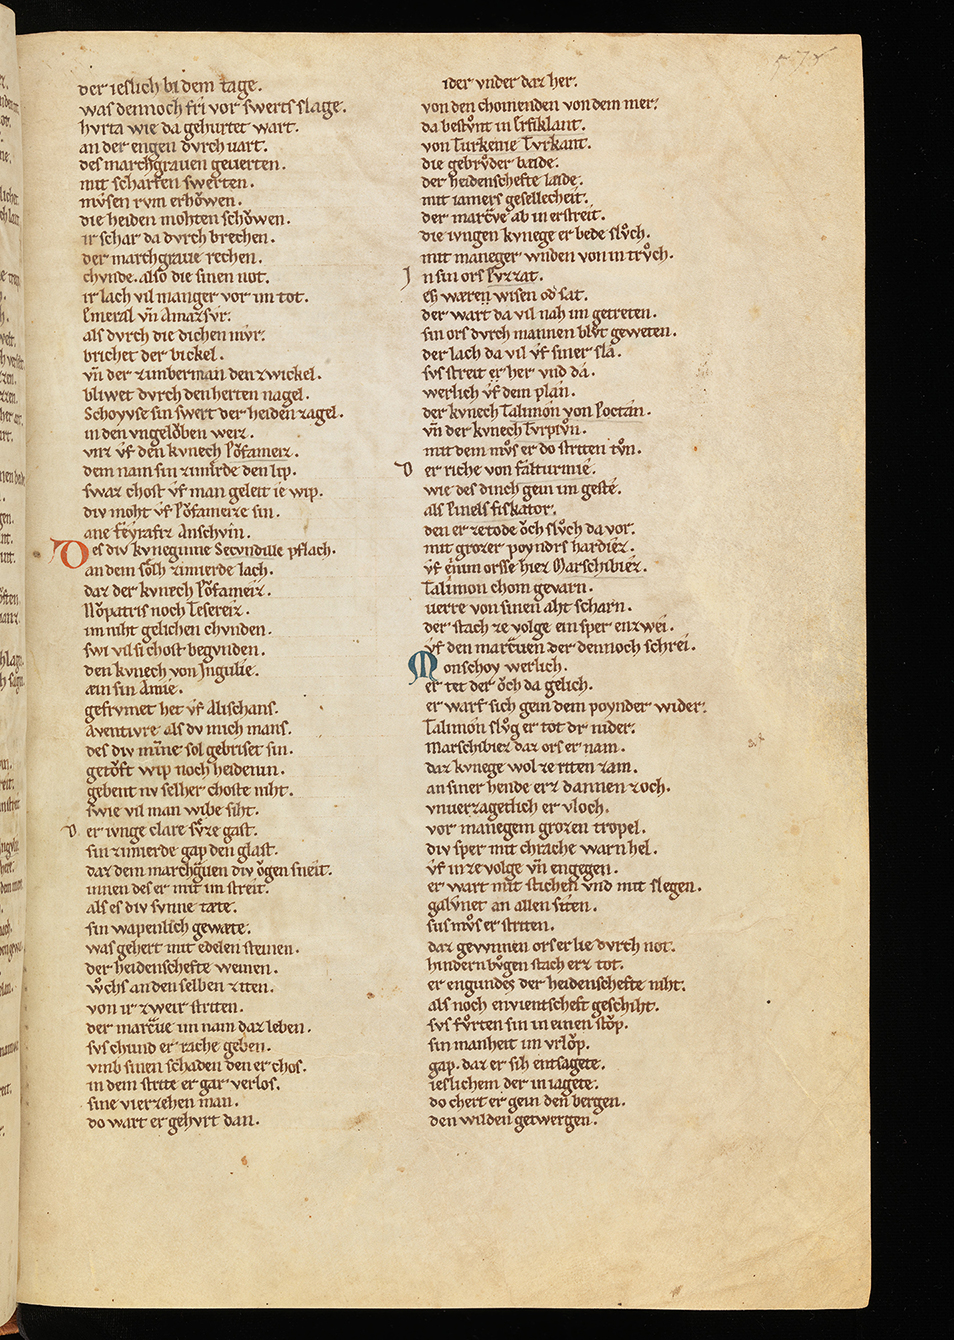 der ieslich bi dem tage.
was dennoch fri vor swerts slage.
hvrta wie da gehurtet wart.
an der engen dvrch uart.
des marchgrauen geuerten.
mit scharfen swerten.
mv̊sen rvm erhŏwen.
die heiden mohten schŏwen.
ir schar da dvrch brechen.
der marchgraue rechen.
chvnde. also die sinen not.
ir lach vil manger vor im tot.
Emeral vn̄ Amazsvr:
als dvrch die dichen mvr:
brichet der bickel.
vn̄ der zimberman den zwickel.
bliwet dvrch den herten nagel.
Schoyvse sin swert der heiden zagel.
in den vngelŏben weiz.
vnz v̊f den kvnech Pŏfameiz.
dem nam sin zimirde den lip.
swaz chost v̊f man geleit ie wip.
div moht v̊f Pŏfameize sin.
ane feyrafiz Anschvin.
Des div kvneginne Secvndille pflach.
an dem sŏlh zimierde lach.
daz der kvnech Pŏfameiz.
Nŏpatris noch Tesereiz.
im niht gelichen chvnden.
swi vil si chost begvnden.
den kvnech von Jngulie.
æin sin Amie.
gefrvmet het v̊f Alischans.
Aventivre als dv mich mans.
des div miñe sol gebriset sin.
getŏft wip noch heidenin.
gebent nv selher choste niht.
swie vil man wibe siht.
Der ivnge clare sv̊ze gast.
sin zimierde gap den glast.
daz dem marchgͣuen div ŏgen sneit.
innen des er mit im streit.
als es div svnne tæte.
sin wapenlich gewæte.
was gehert mit edelen steinen.
der heidenschefte weinen.
wͦchs an den selben ziten.
von ir zweir striten.
der marcͣue im nam daz leben.
svs chund er rache geben.
vmb sinen schaden den er chos.
in dem strite er gar verlos.
sine vierzehen man.
do wart er gehvrt dan.
ider vnder daz her.
von den chomenden von dem mer:
da bestv̊nt in Erfiklant.
von Turkenie Turkant.
die gebrv̊der baide.
der heidenschefte laide.
mit iamers gesellecheit.
der marcͣve ab in erstreit.
die ivngen kvnege er bede slv̊ch.
mit maneger wnden von in trv̊ch.
Jn sin ors Pvzzat.
es wæren wisen od sat.
der wart da vil nah im getreten.
sin ors dvrch mannen blv̊t geweten.
der lach da vil v̊f siner sla.
svs streit er her vnd da.
werlich v̊f dem plan.
der kvnech Talimon von Poctan.
vn̄ der kvnech Tvrpivn.
mit dem mv̊s er do striten tv̊n.
Der riche von falturmie.
wie des dinch gein im geste.
als Einels fiskator.
den er zetode ŏch slv̊ch da vor.
mit grozer poynders hardiez.
v̊f einim orsse hiez Marschibiez.
Talimon chom gevarn.
uerre von sinen aht scharn.
der stach ze volge ein sper enzwei.
v̊f den marcͣuen der dennoch schrei.
Monschoy werlich.
er tet der ŏch da gelich.
er warf sich gein dem poynder wider:
Talimon slv̊g er tot dr nider:
Marschibiez daz ors er nam.
daz kvnege wol ze riten zam.
an siner hende erz dannen zoch.
vnuerzagetlich er vloch.
vor manegem grozen tropel.
div sper mit chrache warn hel.
v̊f in ze volge vn̄ engegen.
er wart mit stichen vnd mit slegen.
galv̊net an allen siten.
sus mv̊s er striten.
daz gewnnen ors er lie dvrch not.
hindern bv̊gen stach erz tot.
er engundes der heidenschefte niht.
als noch envientscheft geschiht.
svs fv̊rten sin in einen stŏp.
sin manheit im vrlŏp.
gap. daz er sih entsagete.
ieslichem der in iagete.
do chert er gein den bergen.
den wilden getwergen.